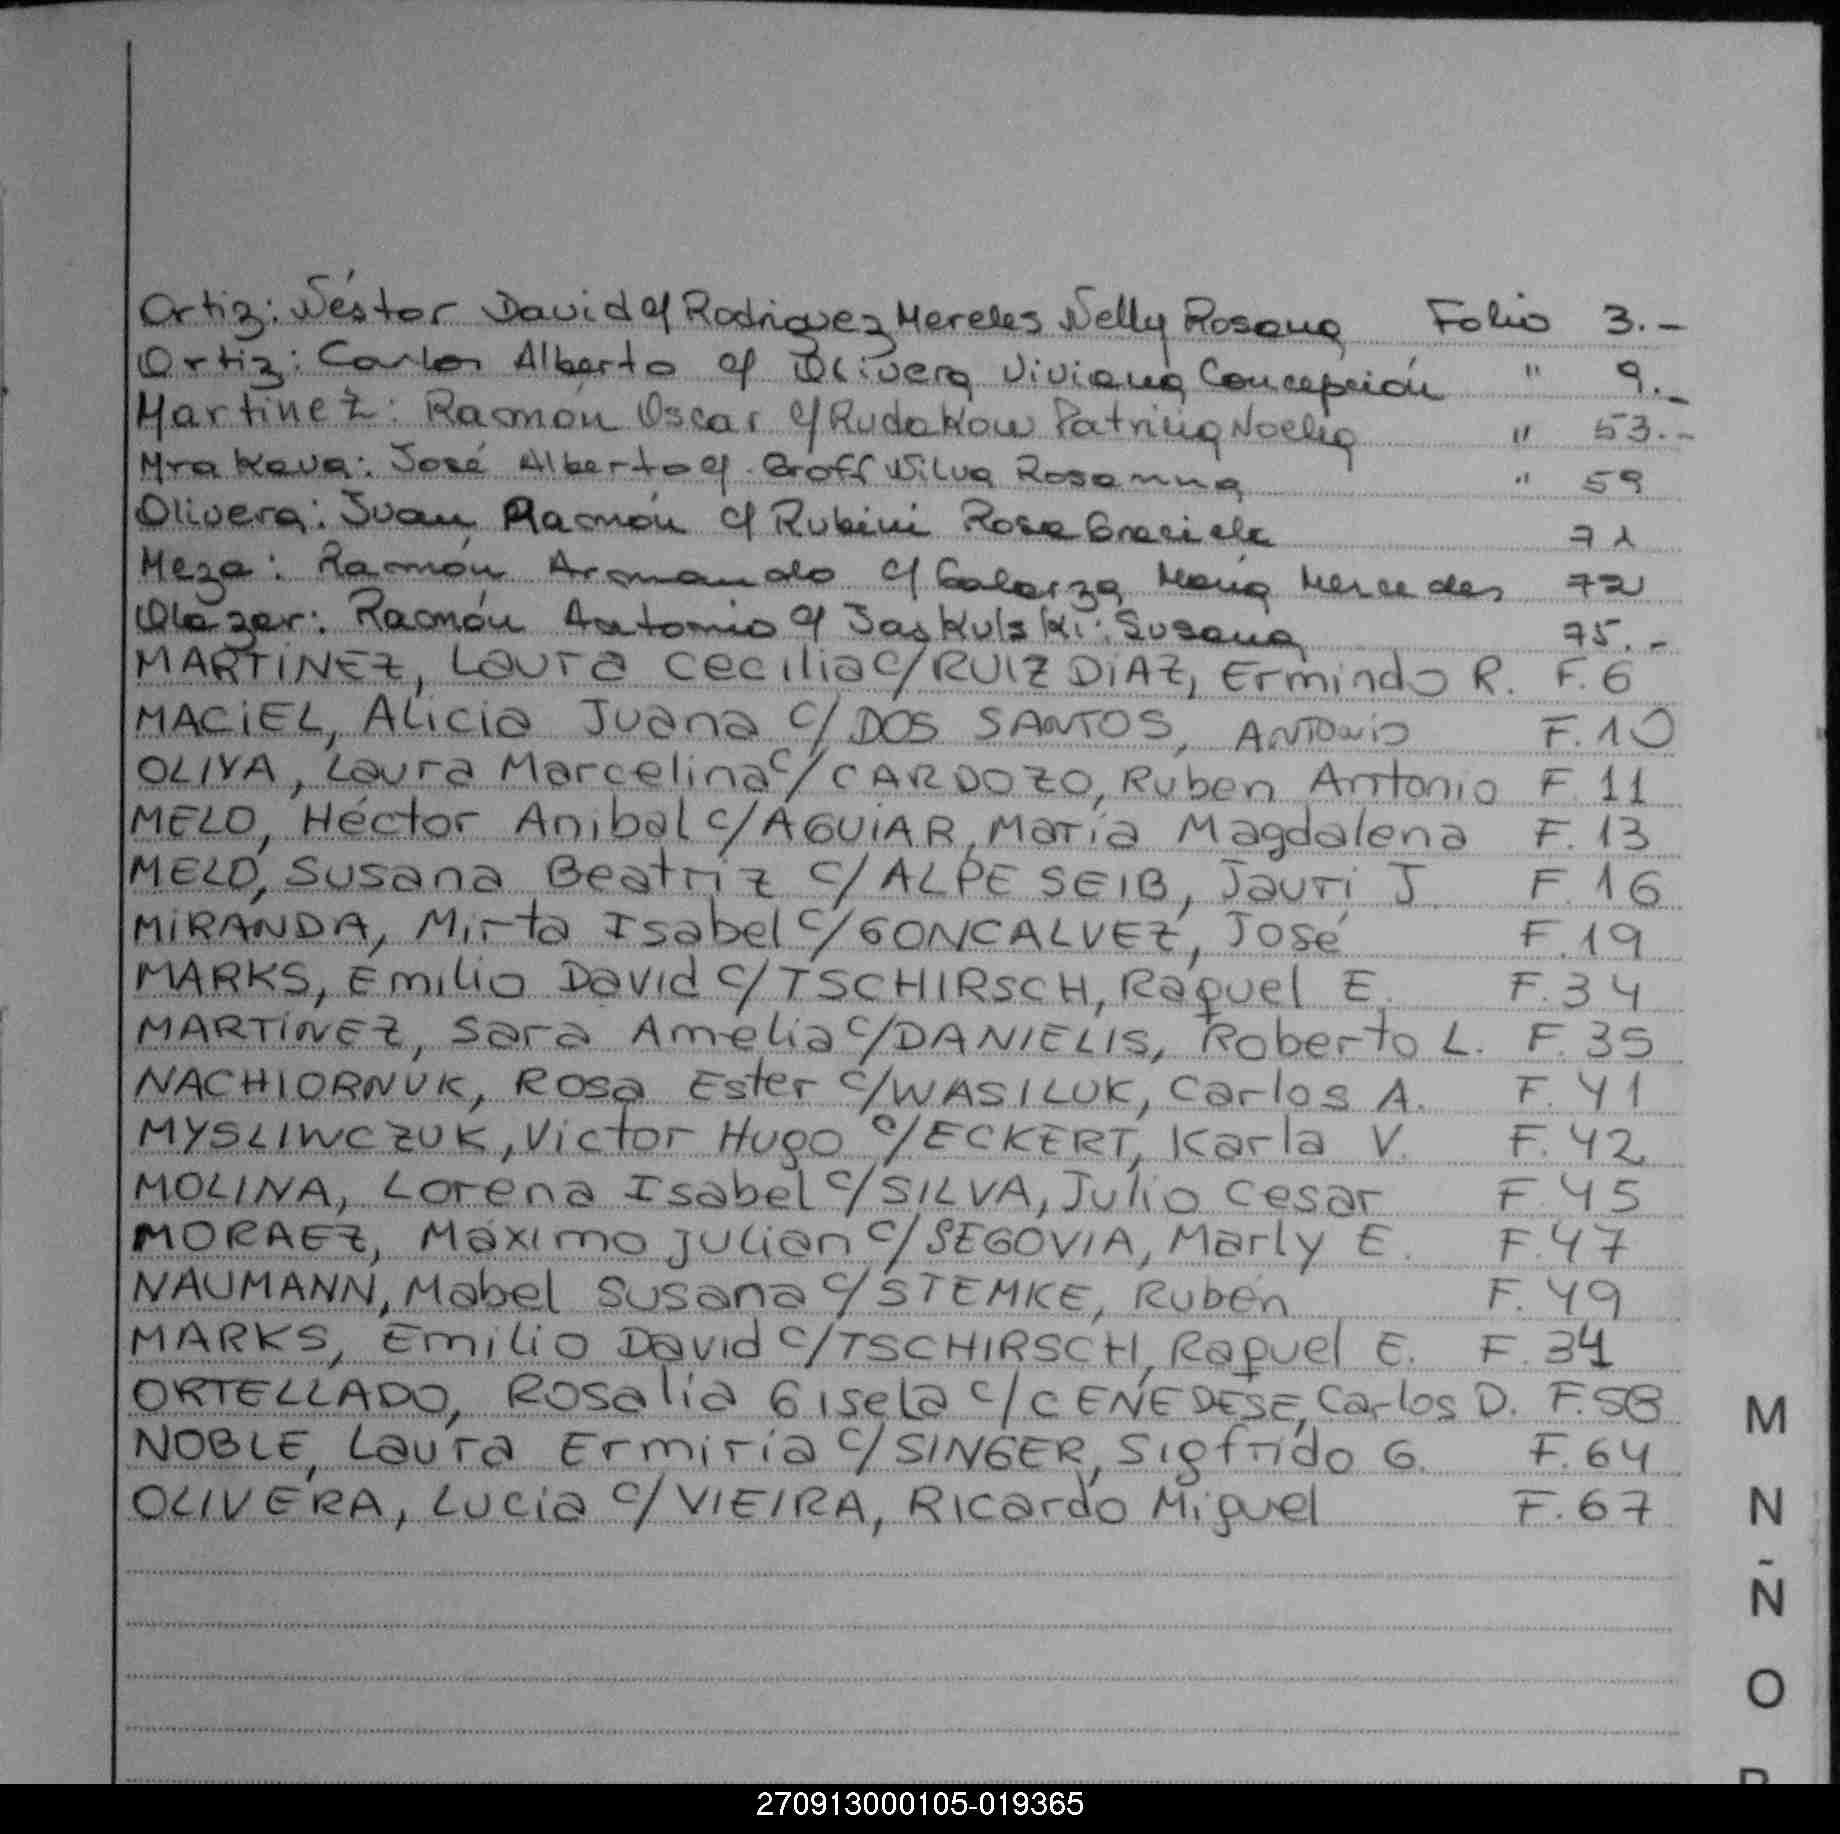 Ortiz: Néstor David c/ Rodriguez Mereles Nelly Rosana Folio 3.-
Ortiz: Carlos Alberto c/ Olivera Viviana Concepción " 9.-
Martinez: Ramón Oscar c/ Rudakow Patricia Noelia " 53.-
Mrakava: José Alberto c/ Groff Nilva Rosanna " 59
Olivera: Juan Ramón c/ Rubini Rosa Graciela 71
Meza: Ramón Armando c/ Galarza María Mercedes 72
Olazar: Ramón Antonio c/ Jaskulski: Susana 75.-
MARTINEZ, Laura Cecilia c/ RUIZ DIAZ, Ermindo R. F. 6
MACIEL, Alicia Juana c/ DOS SANTOS, ANTONIO F. 10
OLIVA, Laura Marcelina c/ CARDOZO, Ruben Antonio F. 11
MELO, Héctor Anibal c/ AGUIAR, María Magdalena F. 13
MELO, Susana Beatriz c/ ALPE SEIB, Jauri J. F. 16
MIRANDA, Mirta Isabel c/ GONCALVEZ, José F. 19
MARKS, Emilio David c/ TSCHIRSCH, Raquel E. F. 34
MARTINEZ, Sara Amelia c/ DANIELIS, Roberto L. F. 35
NACHIORNUK, Rosa Ester c/ WASILUK, Carlos A. F. 41
MYSLIWCZUK, Victor Hugo c/ ECKERT, Karla V. F. 42
MOLINA, Lorena Isabel c/ SILVA, Julio Cesar F. 45
MORAEZ, Máximo Julian c/ SEGOVIA, Marly E. F. 47
NAUMANN, Mabel Susana c/ STEMKE, Rubén F. 49
MARKS, Emilio David c/ TSCHIRSCH, Raquel E. F. 34
ORTELLADO, Rosalia Gisela c/ CENEDESE, Carlos D. F. 58
NOBLE, Laura Ermiria c/ SINGER, Sigfrido G. F. 64
OLIVERA, Lucia c/ VIEIRA, Ricardo Miguel F. 67
M
N
Ñ
O
P
270913000105-019365